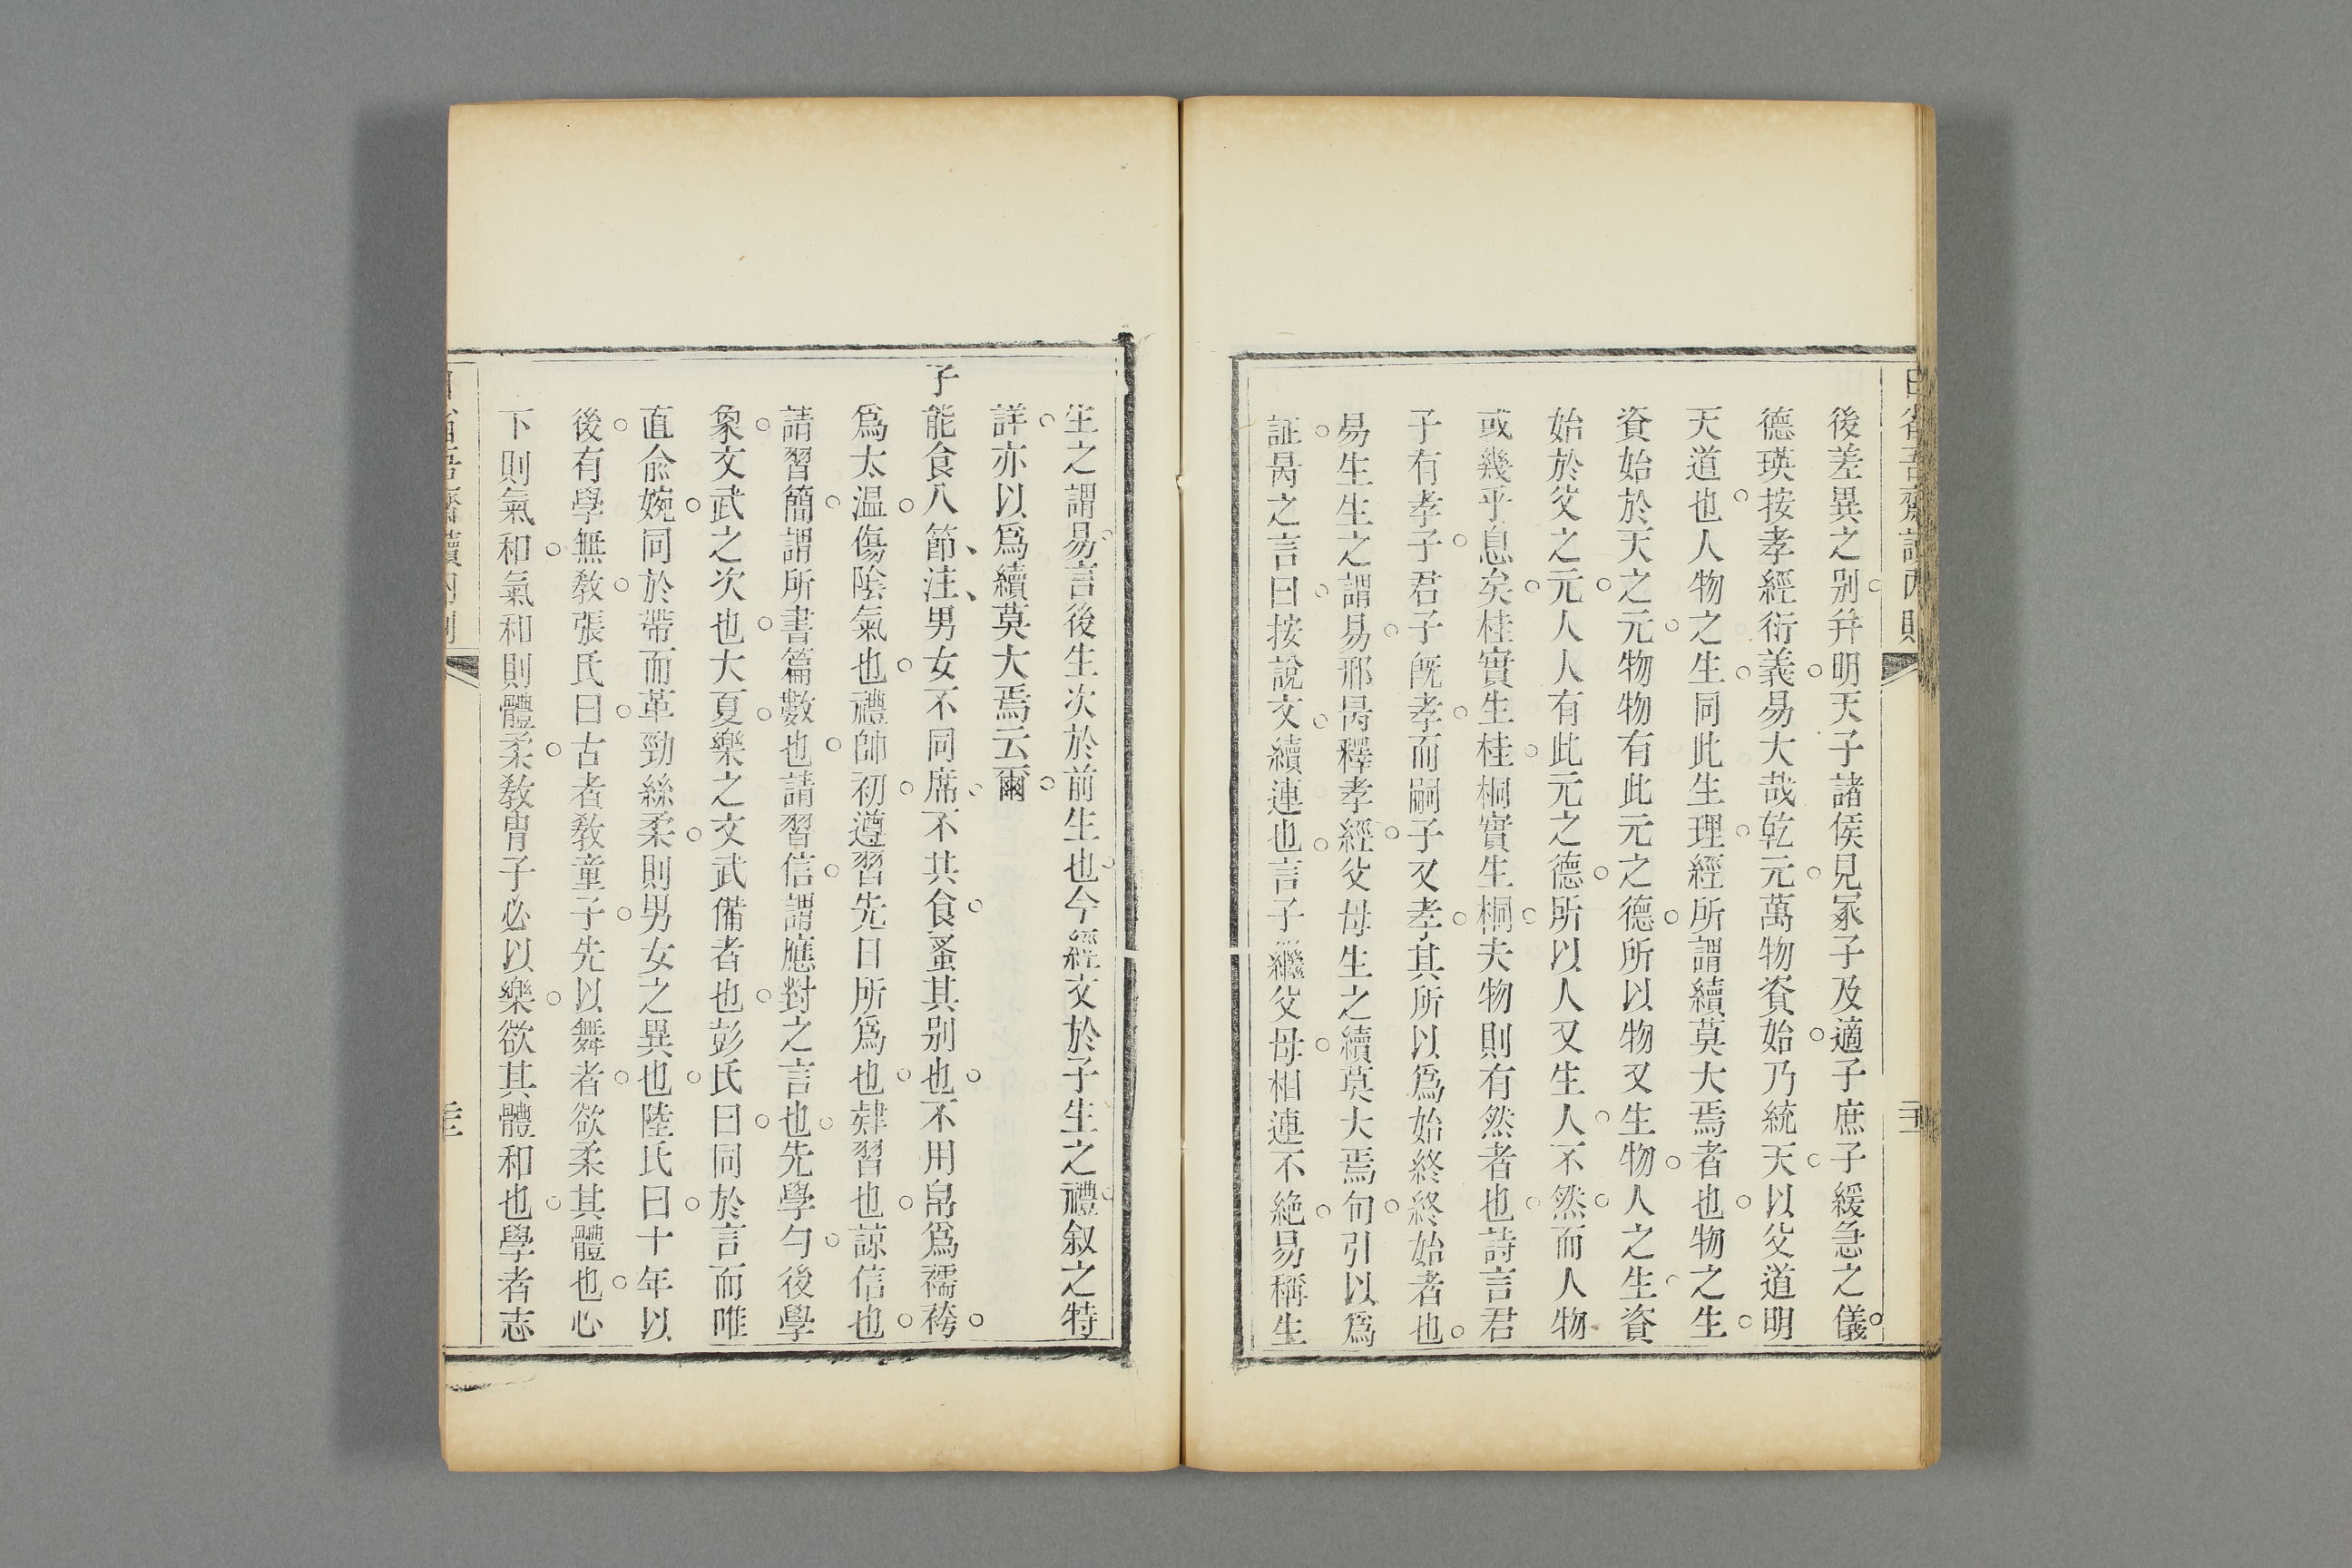 日省吾齋讀內則
後差異之别弁明天子諸侯見冢子及適子庶子緩急之儀
德瑛按孝經衍義易大哉乾元萬物資始乃統天以父道明
天道也人物之生同此生理經所謂續莫大焉者也物之生
資始於天之元物物有此元之德所以物又生物人之生資
始於父之元人人有此元之德所以人又生人不然而人物
或幾乎息矣桂實生桂桐實生桐夫物則有然者也詩言君
子有孝子君子旣孝而嗣子又孝其所以爲始終終始者也
易生生之謂易邢昺釋孝經父母生之續莫大焉句引以爲
証昺之言曰按說文續連也言子繼父母相連不絶易稱生
生之謂易言後生次於前生也今經文於子生之禮叙之特
詳亦以爲續莫大焉云爾
子能食八節注男女不同席不共食蚤其别也不用帛爲襦袴
爲太温傷陰氣也禮帥初遵習先日所爲也肄習也諒信也
請習簡謂所書篇數也請習信謂應對之言也先學勺後學
象文武之次也大夏樂之文武備者也彭氏曰同於言而唯
直兪婉同於帶而革勁絲柔則男女之異也陸氏曰十年以
後有學無敎張氏曰古者敎童子先以舞者欲柔其體也心
下則氣和氣和則體柔敎胄子必以樂欲其體和也學者志